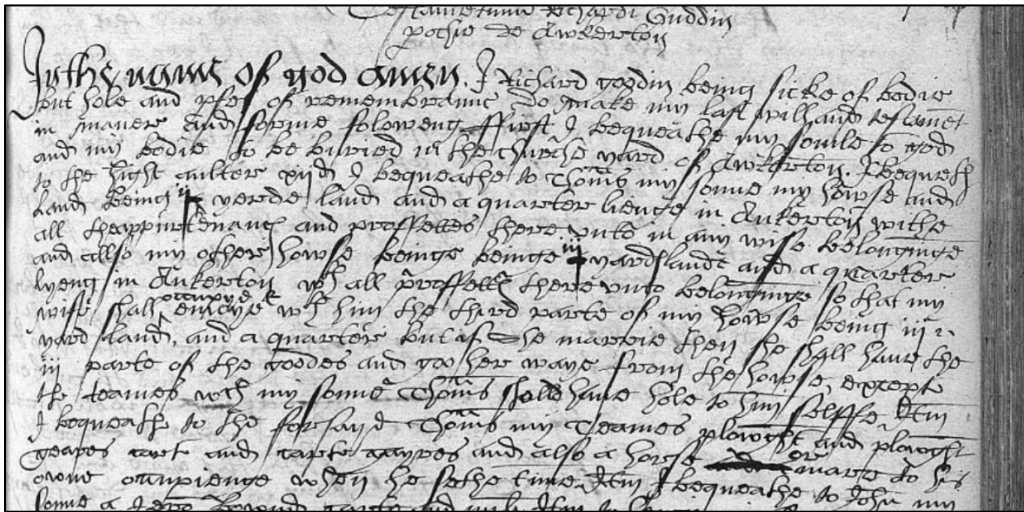 Testamentum Richardi Guddin
pochie de Awkerton
In the name of god amen. I Richard goddin being sicke of bodie
but hole and pfet of remembraunc do make my last will and testamet
in maner and forme foloweng ffirst I bequeathe my soule to god
and my bodie to be buried in the churche yard of Awkerton. I bequeth
to the hight aulter xijd I bequeathe to Thoms my sonne my howse and
land being ij yerde land and a quarter lienge in Aukerton withe
all theappurtenanc and proffettes there unto in any wise belonginge
and allso my other howse beinge beinge iij yardslande and a quarter
lyeng in Aukerton wth all proffettes thereunto belonginge so that my
wife shall occupye & enioye wth him the third parte of my howse being iij
yard land, and a quarter but if she marrie then she shall have the
iij parte of the goodes and goo her waye from the howse, excepte
the teames wch my sonne Thoms shall have hole to him selffe Itm
I bequeath to the forsayd Thoms my Teames plowght and plowght
geares cart and carte gayres and also a horse or mare to his
owne occupienge when he sethe time Itm I bequeathe to John my
sonne a